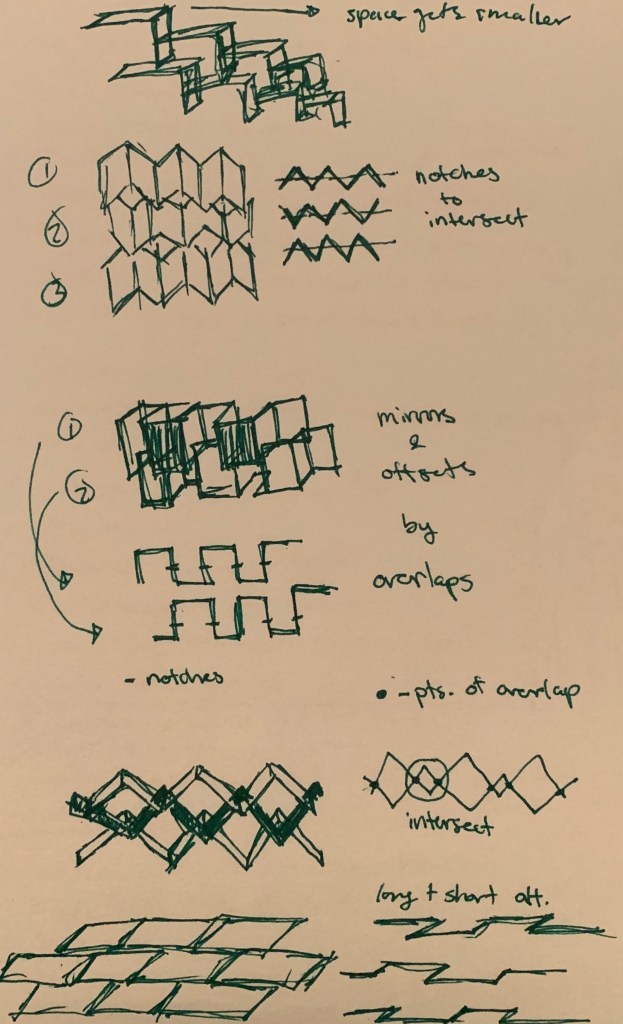 space gets smaller
①
notches
to
②
intersect
③
①
mirrors
&
②
offsets
by
overlaps
- notches
• - pts. of overlap
intersect
long + short alt.